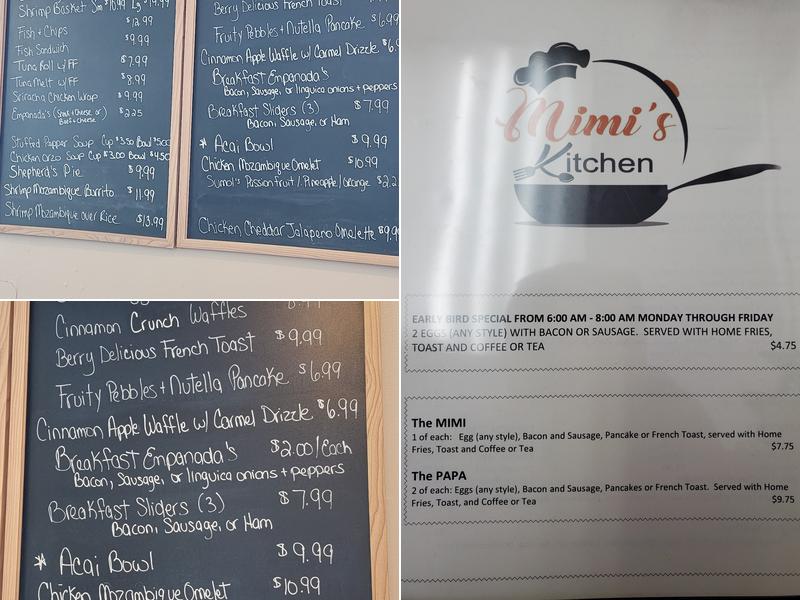 Shrimp Basket Sm $10.99 Lg $14.99
$12.99
Fish + Chips
$9.99
Fish Sandwich
Tuna Roll w/FF $7.99
Tuna Melt w/FF $8.99
Sriracha Chicken Wrap $9.99
Empanada's (Steak + Cheese or Beef + cheese) $2.25
Stuffed Pepper Soup Cup $3.50 Bowl $5.00
Chicken Orzo Soup Cup $3.00 Bowl $4.50
Shepherd's Pie $9.99
Shrimp Mozambique Burrito $11.99
Shrimp Mozambique over Rice $13.99
Berry Delicious French Toast
Fruity Pebbles + Nutella Pancake $6.99
Cinnamon Apple Waffle w/ Carmel Drizzle $6.
Breakfast Empanada's
Bacon, Sausage, or linguica onions + peppers
Breakfast Sliders (3) $7.99
Bacon, Sausage, or Ham
* Acai Bowl $9.99
Chicken Mozambique Omelet $10.99
Sumol's Passionfruit / Pineapple / Orange $2.2
Chicken Cheddar Jalapeno Omelette $9.9
Cinnamon Crunch Waffles
Berry Delicious French Toast $9.99
Fruity Pebbles + Nutella Pancake $6.99
Cinnamon Apple Waffle w/ Carmel Drizzle $6.99
Breakfast Empanada's $2.00/Each
Bacon, Sausage, or linguica onions + peppers
Breakfast Sliders (3) $7.99
Bacon, Sausage, or Ham
* Acai Bowl $9.99
Chicken Mozambique Omelet $10.99
Mimi's
Kitchen
EARLY BIRD SPECIAL FROM 6:00 AM - 8:00 AM MONDAY THROUGH FRIDAY
2 EGGS (ANY STYLE) WITH BACON OR SAUSAGE. SERVED WITH HOME FRIES,
TOAST AND COFFEE OR TEA $4.75
The MIMI
1 of each: Egg (any style), Bacon and Sausage, Pancake or French Toast, served with Home
Fries, Toast and Coffee or Tea $7.75
The PAPA
2 of each: Eggs (any style), Bacon and Sausage, Pancakes or French Toast. Served with Home
Fries, Toast, and Coffee or Tea $9.75